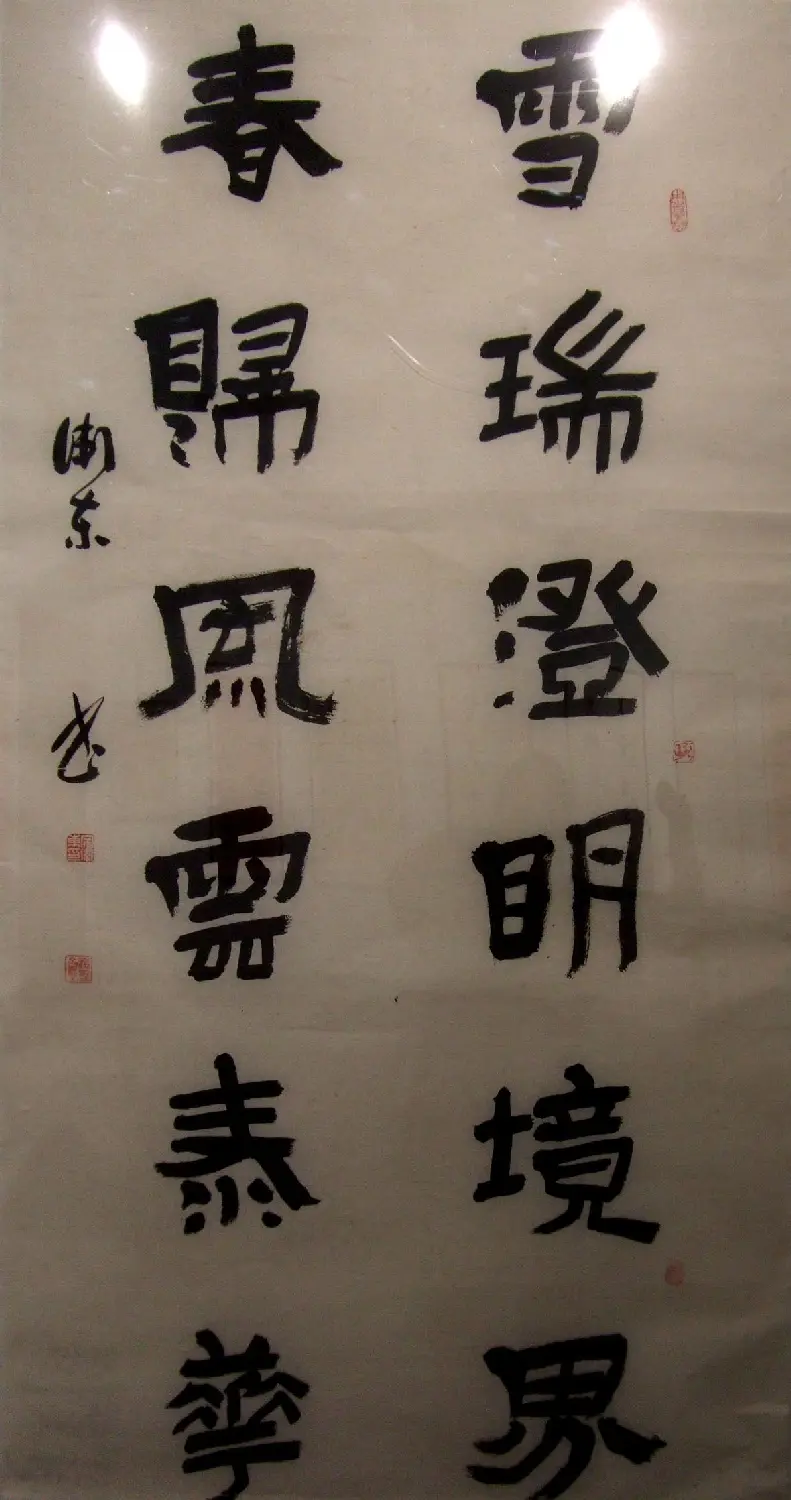 雪瑞澄明境界
春歸風雲泰華
衛東 書